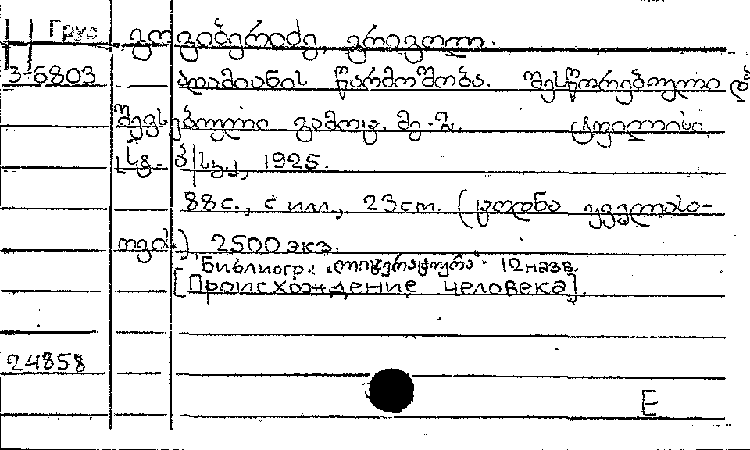 Груз
გოგიბერიძე, გრიგოლ.
3-6803 ადამიანის წარმოშობა. შესწორებული და
შევსებული გამოც. მე-2. ტფილისი,
1925.
88 с., с илл., 23 cm. (ცოდნა ყველასა-
თვის) 2500 экз.
Библиогр.: ლიტერატურა. 12 назв.
[Происхождение человека].
24858
E